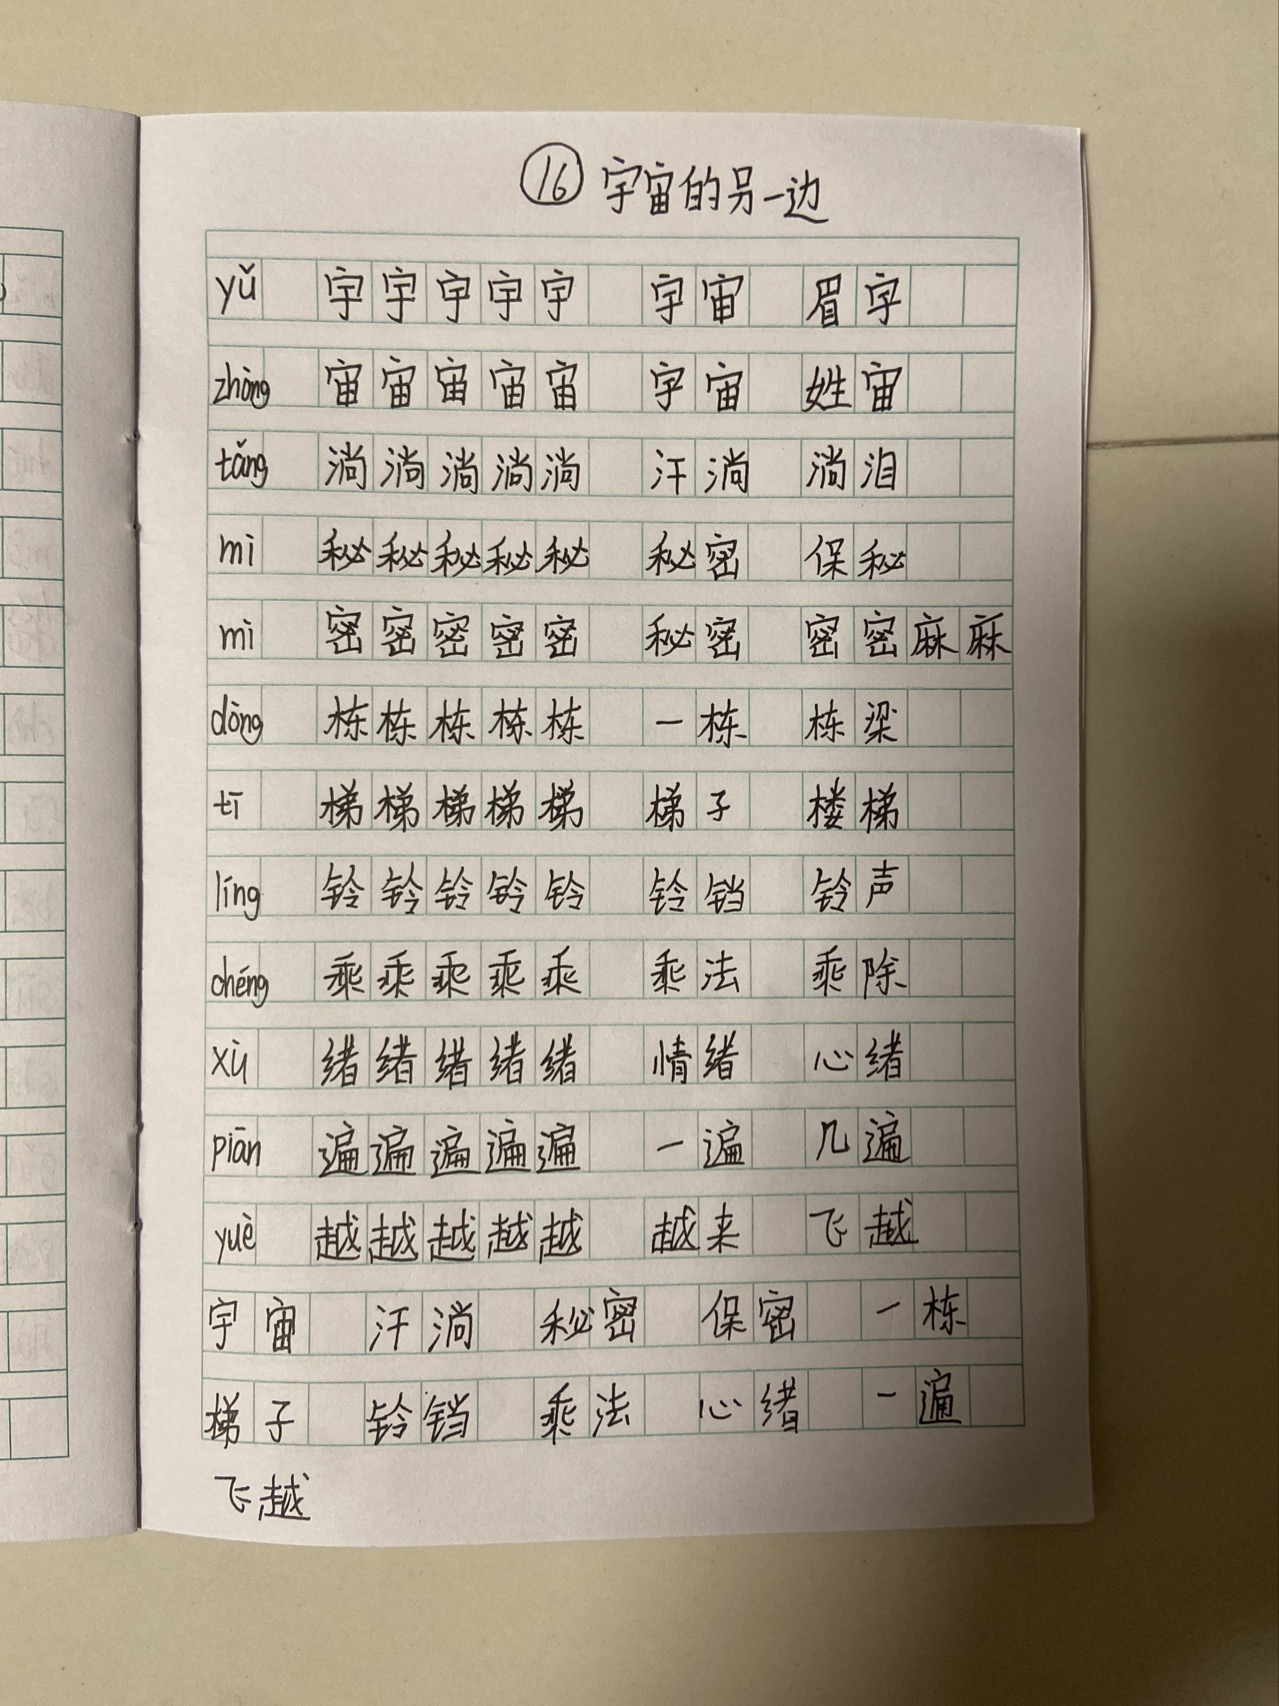 16 宇宙的另一边
yǔ 宇宇宇宇宇 宇宙 眉宇
zhòng 宙宙宙宙宙 宇宙 姓宙
tǎng 淌淌淌淌淌 汗淌 淌泪
mì 秘秘秘秘秘 秘密 保秘
mì 密密密密密 秘密 密密麻麻
dòng 栋栋栋栋栋 一栋 栋梁
tī 梯梯梯梯梯 梯子 楼梯
líng 铃铃铃铃铃 铃铛 铃声
chéng 乘乘乘乘乘 乘法 乘除
xù 绪绪绪绪绪 情绪 心绪
piān 遍遍遍遍遍 一遍 几遍
yuè 越越越越越 越来 飞越
宇宙 汗淌 秘密 保密 一栋
梯子 铃铛 乘法 心绪 一遍
飞越